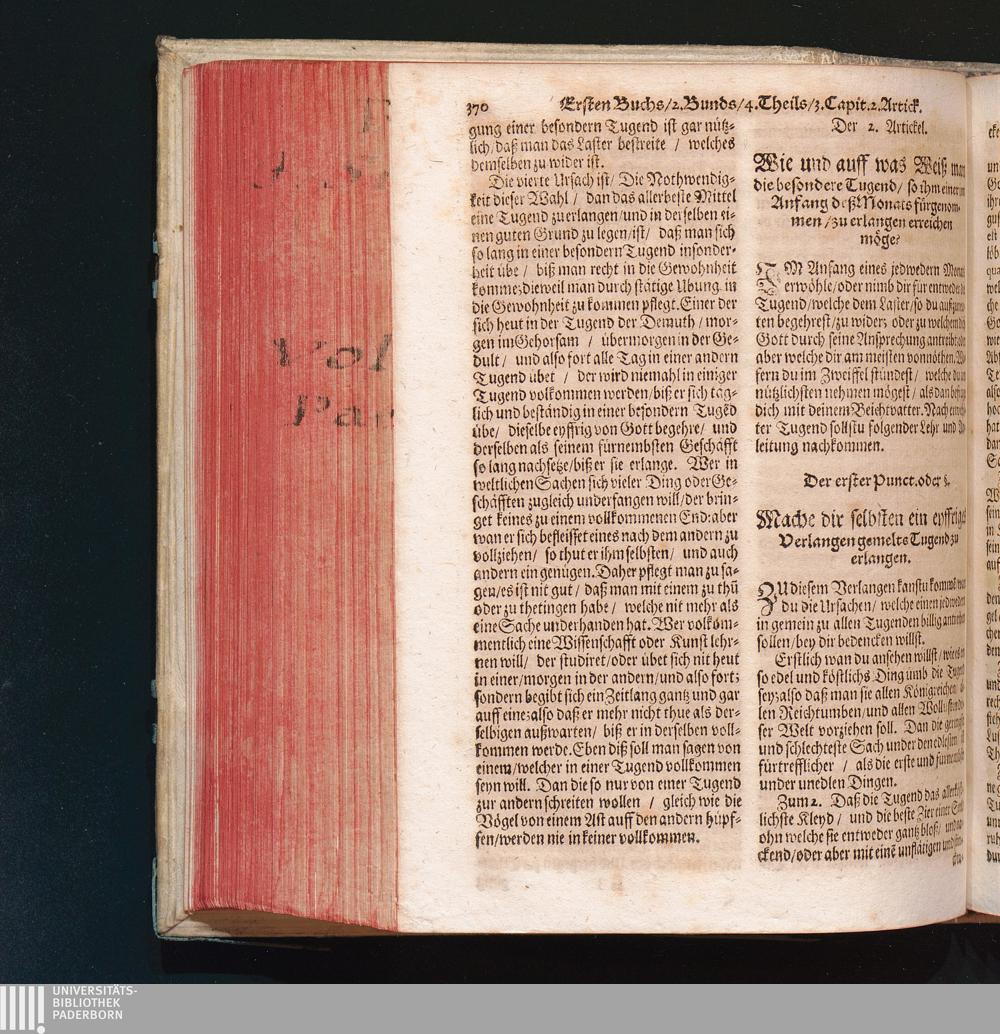 370 Ersten Buchs/2. Bunds/4. Theils/3. Capit. 2. Artick.
gung einer besondern Tugend ist gar nütz-
lich/daß man das Laster bestreite / welches
demselben zu wider ist.
Die vierte Ursach ist/ Die Nothwendig-
keit dieser Wahl / dan das allerbeste Mittel
eine Tugend zuerlangen/und in derselben ei-
nen guten Grund zu legen/ist/ daß man sich
so lang in einer besondern Tugend insonder-
heit übe / biß man recht in die Gewohnheit
komme; dieweil man durch stätige Ubung in
die Gewohnheit zu kommen pflegt. Einer der
sich heut in der Tugend der Demuth/ mor-
gen im Gehorsam / übermorgen in der Ge-
dult / und also fort alle Tag in einer andern
Tugend übet / der wird niemahl in einiger
Tugend volkommen werden/biß er sich täg-
lich und beständig in einer besondern Tugẽd
übe/ dieselbe eyffrig von Gott begehre/ und
derselben als seinem fürnembsten Geschäfft
so lang nachsetze/biß er sie erlange. Wer in
weltlichen Sachen sich vieler Ding oder Ge-
schäfften zugleich underfangen will/der brin-
get keines zu einem vollkommenen End: aber
wan er sich befleisset eines nach dem andern zu
vollziehen/ so thut er ihm selbsten/ und auch
andern ein genügen. Daher pflegt man zu sa-
gen/es ist nit gut/ daß man mit einem zu thũ
oder zu thetingen habe/ welche nit mehr als
eine Sache underhanden hat. Wer volkom-
mentlich eine Wissenschafft oder Kunst lehr-
nen will/ der studiret/oder übet sich nit heut
in einer/morgen in der andern/und also fort;
sondern begibt sich ein Zeitlang gantz und gar
auff eine; also daß er mehr nicht thue als der-
selbigen außwarten/ biß er in derselben voll-
kommen werde. Eben diß soll man sagen von
einem/welcher in einer Tugend vollkommen
seyn will. Dan die so nur von einer Tugend
zur andern schreiten wollen / gleich wie die
Vögel von einem Ast auff den andern hüpf-
fen/werden nie in keiner vollkommen.
Der 2. Artickel.
Wie und auff was Weiß man
die besondere Tugend/ so ihm einer im
Anfang deß Monats fürgenom-
men/zu erlangen erreichen
möge?
IM Anfang eines jedwedern Monats
erwöhle/oder nimb dir für entweder die
Tugend/welche dem Laster/so du außzurot-
ten begehrest/zu wider; oder zu welchem dich
Gott durch seine Ansprechung antreibt; oder
aber welche dir am meisten vonnöthen.
fern du im Zweiffel stündest/ welche du am
nützlichsten nehmen mögest/ als dan befrag
dich mit deinem Beichtvatter. Nach erwöhl-
ter Tugend sollstu folgender Lehr und An-
leitung nachkommen.
Der erster Punct. oder §.
Mache dir selbsten ein eyffriges
Verlangen gemelte Tugend zu
erlangen.
ZU diesem Verlangen kanstu kommẽ wan
du die Ursachen/ welche einen jedwedern
in gemein zu allen Tugenden billig antreiben
sollen/bey dir bedencken willst.
Erstlich wan du ansehen willst/
so edel und köstlichs Ding umb die Tugend
sey; also daß man sie allen Königreichen/
len Reichtumben/und allen
ser Welt vorziehen soll. Dan die geringste
und schlechteste Sach under den edlesten ist
fürtrefflicher / als die erste und fürnembste
under unedlen Dingen.
Zum 2. Daß die Tugend das
lichste Kleyd/ und die beste Zier einer Seel
ohn welche sie entweder gantz bloß/
ckend/oder aber mit einẽ unflätigen
UNIVERSITÄTS-
BIBLIOTHEK
PADERBORN